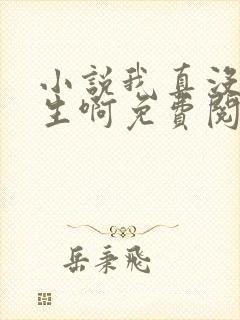 小説我真沒
生啊免費閱
岳秉飛